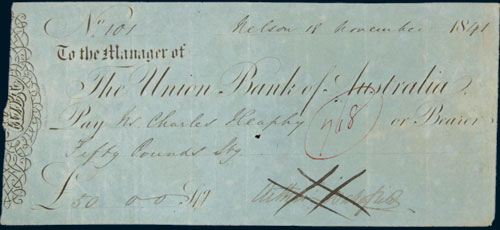 No. 101 Nelson 18 November 1841
To the Manager of
The Union Bank of Australia.
Pay Mr Charles Heaphy or Bearer
Fifty Pounds Stg
£50.00